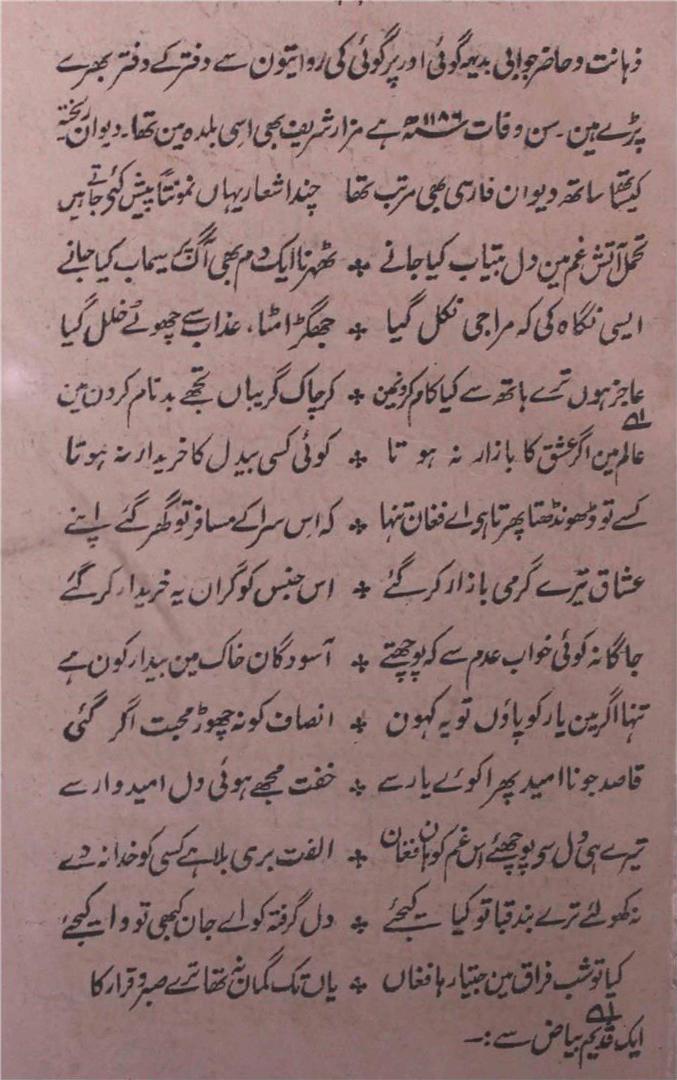 ذہانت و حاضر جوابی بدیہہ گوئی اور پرگوئی کی روایتون سے دفتر کے دفتر بھرے
پڑے ہین۔ سن وفات ۱۱۸۶ھ ہے مزار شریف بھی اسی بلدہ مین تھا۔ دیوان ریختہ
کیساتھ ساتھ دیوان فارسی بھی مرتب تھا چند اشعار یہاں نمونتاً پیش کئے جاتے ہیں
تحمل آتش غم مین دل بیتاب کیا جانے ٭ ٹھہرنا ایک دم بھی آگ پر سیماب کیا جانے
ایسی نگاہ کی کہ مرا جی نکل گیا ٭ جھگڑا مٹا، عذاب سے چھوٹے خلل گیا
عاجز ہوں ترے ہاتھ سے کیا کام کرون مین ٭ کر چاک گریباں تجھے بدنام کرون مین
عالم مین اگر عشق کا بازار نہ ہوتا ٭ کوئی کسی بیدل کا خریدار نہ ہوتا
کسے تو ڈھونڈھتا پھرتا ہی اے فغان تنہا ٭ کہ اس سرا کے مسافر تو گھر گئے اپنے
عشاق تیرے گرمی بازار کر گئے ٭ اس جنس کو گراں یہ خریدار کر گئے
جاگا نہ کوئی خواب عدم سے کہ پوچھتے ٭ آسودگان خاک مین بیدار کون ہے
تنہا اگر مین یار کو پاؤں تو یہ کہون ٭ انصاف کو نہ چھوڑ محبت اگر گئی
قاصد جو نا امید پھرا کوئے یار سے ٭ خفت مجھے ہوئی دل امیدوار سے
تیرے ہی دل سی پوچھئے اس غم کو ہان فغان ٭ الفت بری بلا ہے کسی کو خدا نہ دے
نہ کھولئے ترے بند قبا تو کیا کیجئے ٭ دل گرفتہ کو اے جان کبھی تو وا کیجئے
کیا تو شب فراق مین جیتا رہا فغاں ٭ یاں تک گمان نہ تھا ترے صبر و قرار کا
ایک قدیم بیاض سے :۔